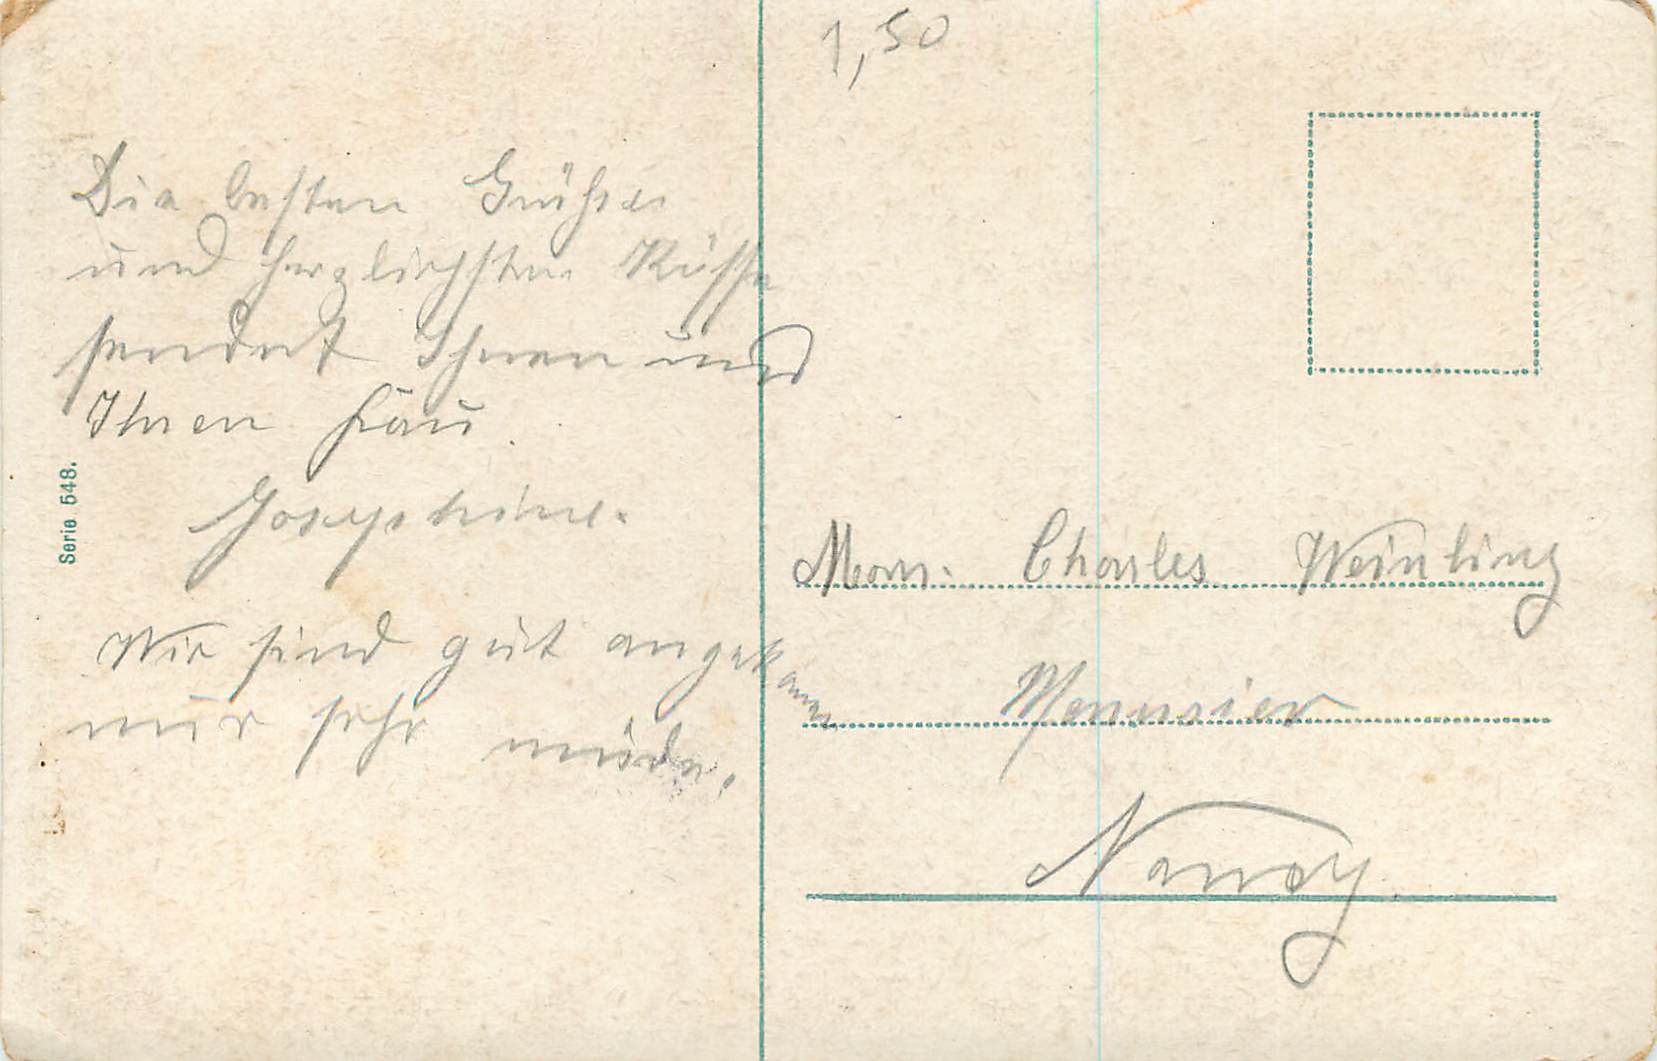 1,50
Die besten Grühse
und herzlichsten Küsse
sendet Ihnen und
Ihnen Frau
Josephine.
Wir sind gut angekommen
nur sehr müde.
Serie 548.
Mons. Charles Weinling
Menusier
Nancy